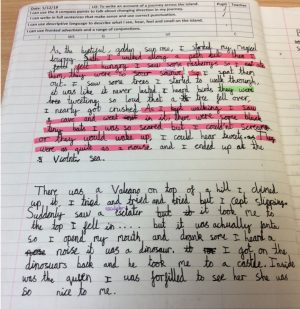 Date: 5/12/18 LO: To write an account of a journey across the island. Pupil Teacher
I can use the 8 compass points to talk about changing direction in my journey.
I can write in full sentences that make sense and use correct punctuation.
I can use descriptive language to describe what I see, hear, feel and smell on the island.
I can use fronted adverbials and a range of conjunctions.
As the sun rose, I started my
path I walked along a path but then I
I saw some
them, they were so sour I spat them
out. I saw some trees I started to walk through
it was like it never ended I heard birds they were
tweeting so loud that a tree fell over,
I nearly got crushed
a cave and went in it there were some black
tiny bats I was so scared but I could'nt scream
or they would wake up, I could hear
were as quiet as a mouse and I ended up at the
Violent Sea.
There was a Valcano on top of a hill I climed
up it I tried and tried and tried but I cept slipping.
Suddenly saw a it took me to
the top I fell in.... but it was actually fanta
so I opend my mouth and drank some I heard a
noise it was a dinosaur. I got on the
dinosuars back and he took me to a castle. Inside
was the queen I was to see her she was
so nice to me.